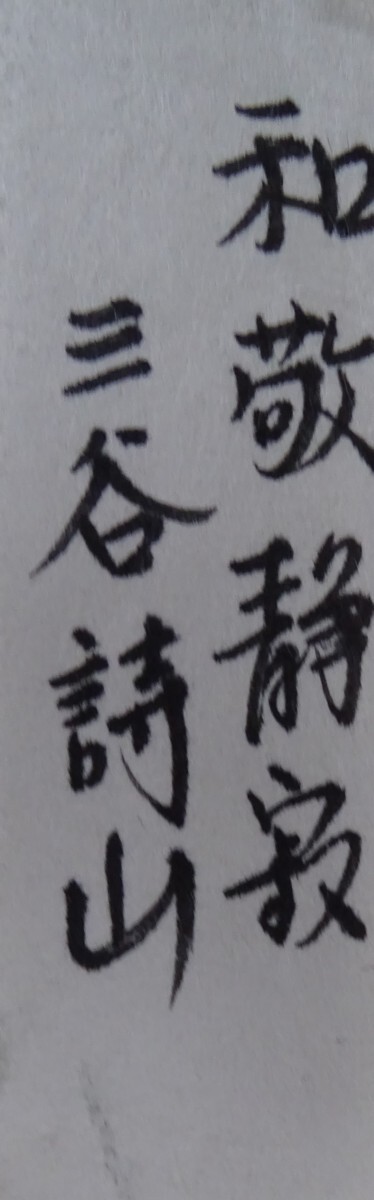 和敬静寂
三谷詩山